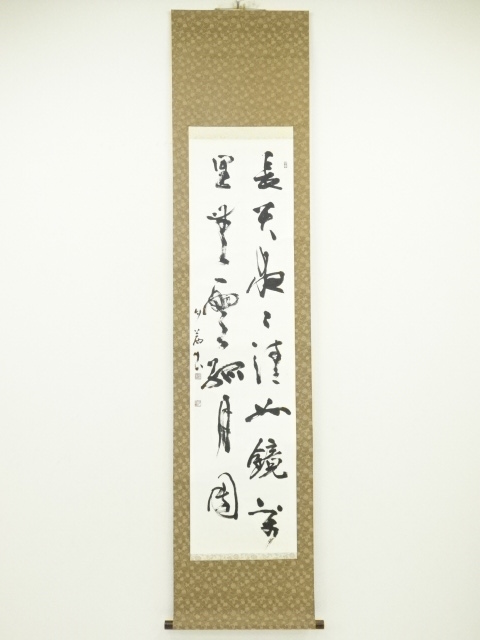 長天夜々清如鏡萬
里無雲孤月圓